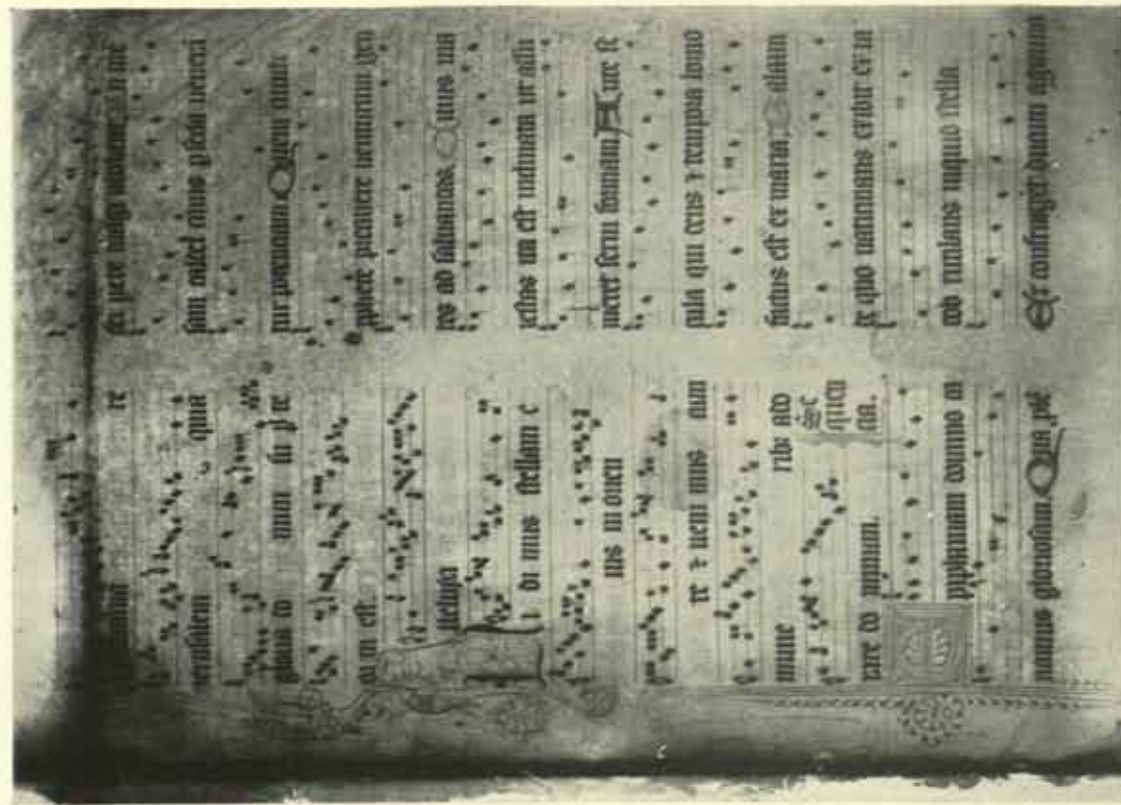 mina re
ierusalem quia
gloria do mini su per te
or ta est
Alleluya
Vi di mus stellam e
ius in orien
te ⁊ ueni mus cum
mune ribus ado
rare do minum. Sequencia.
Epyphaniam domino ca
namus gloriosam Qua plē
dei uere magi adorant
sam caldei cuius ꝑse uenerā
tur potenciam Quem cuncti
ꝓphete precinere uenturum gen
tes ad saluandas Cuius ma
iestas ita est inclinata ut assu
meret serui formam Ante se
cula qui deus ⁊ tempora homo
factus est ex maria. Balaam
de quo uaticinans exibit ex ia
cob rutilans inquid stella
Et confringet ducum agmina